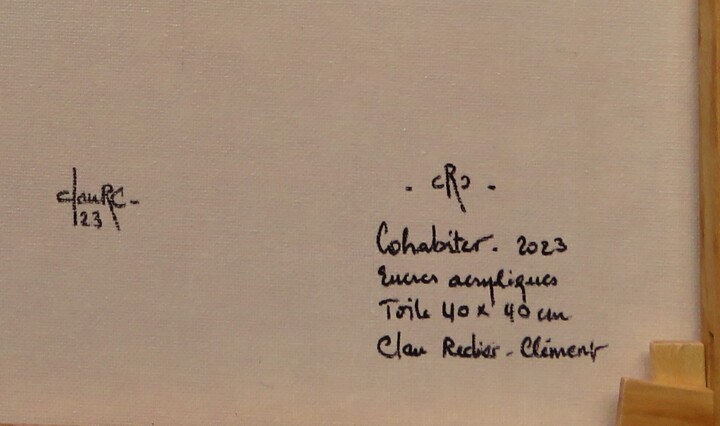 clauRC-
23
. cRɔ .
Cohabiter. 2023
Encres acryliques
Toile 40 x 40 cm
Clau Redier - Clément